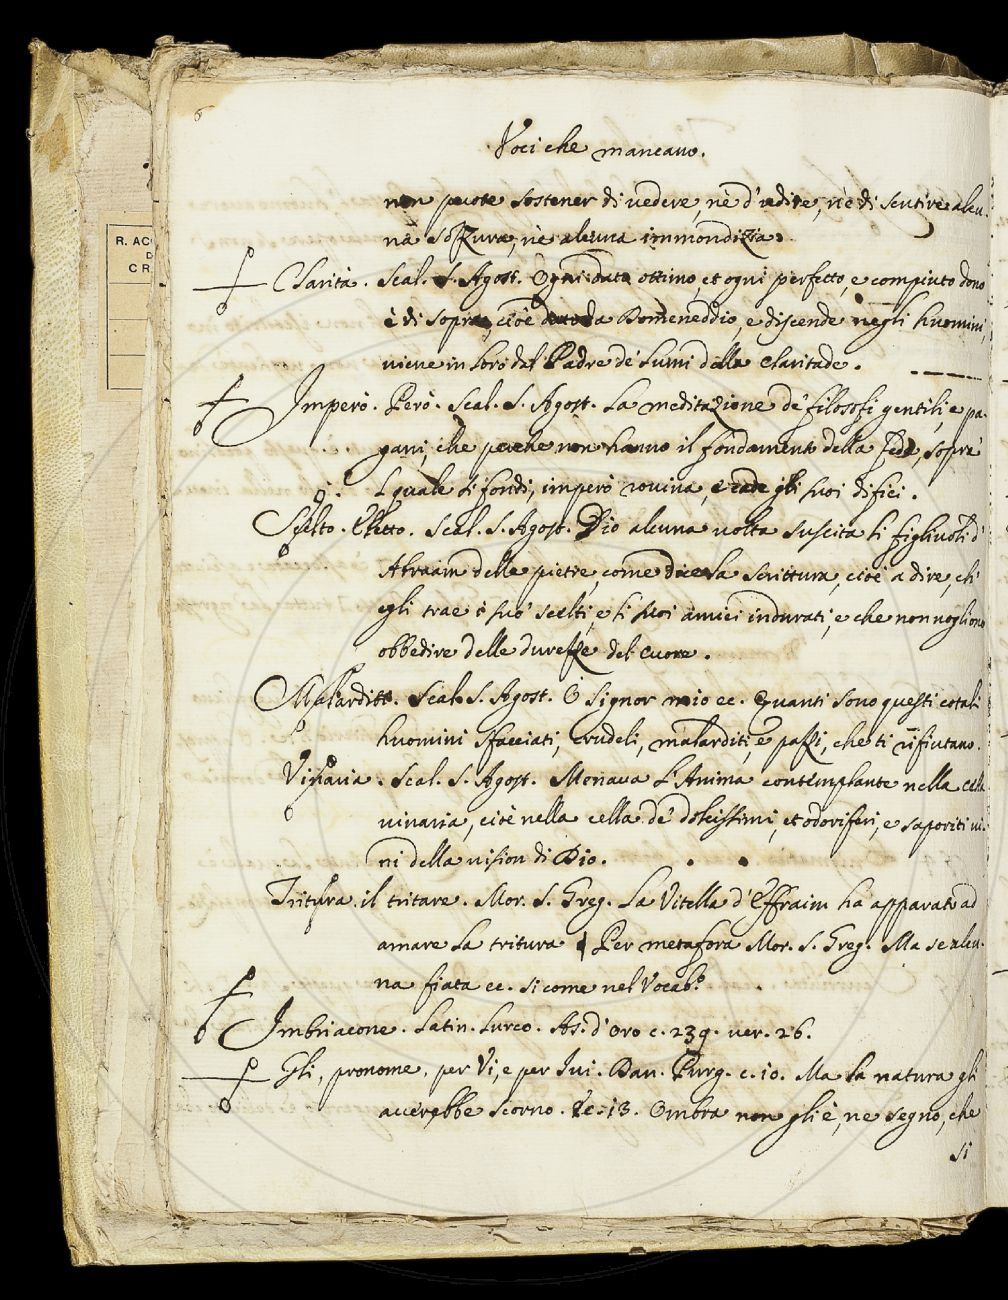 6
Voci che mancano.
non puote sostener di uedere, nè d'udire, nè di sentire alcu-
na sozzura, nè alcuna immondizia.
R. AC
D
CR
Clarità. Scal. S. Agost. Ogni dato ottimo, et ogni perfetto, e compiuto dono
è di sopra, cioè da Domeneddio, e discende negli huomini,
uiene in loro dal Padre de' lumi della Claritade.
Imperò. Però. Scal. S. Agost. La meditazione de' filosofi gentili, e pa-
gani, che perche non hanno il fondamento della fede, sopra
lquale si fondi, imperò rouina, e cade gli suoi difici.
Scelto. Eletto. Scal. S. Agost. Dio alcuna uolta suscita li figliuoli d'
Abraam delle pietre, come dice la scrittura, cioè a dire, ch'
egli trae i suo' scelti, e li suoi amici indurati, e che non uogliono
obbedire delle durezze del cuore.
Malarditi. Scal. S. Agost. O Signor mio ec. Quanti sono questi cotali
huomini sfacciati, crudeli, malarditi, e pazzi, che ti rifiutano.
Vinaria. Scal. S. Agost. Menaua l'Anima contemplante nella cella
uinaria, cioè nella cella de' dolcissimi, et odoriferi, e saporiti ui-
ni della uision di Dio.
Tritura. il tritare. Mor. S. Greg. La Vitella d'Effraim ha apparato ad
amare la tritura Per metafora Mor. S. Greg. Ma se alcu-
na fiata ec. si come nel Vocab.º
Imbriacone. Latin. Lurco. As. d'oro c. 239. uer. 26.
Gli, pronome, per Vi, e per Iui. Dan. Purg. c. 10. Ma la natura gli
auerebbe scorno. E c. 13. Ombra non gli è, ne segno, che
si